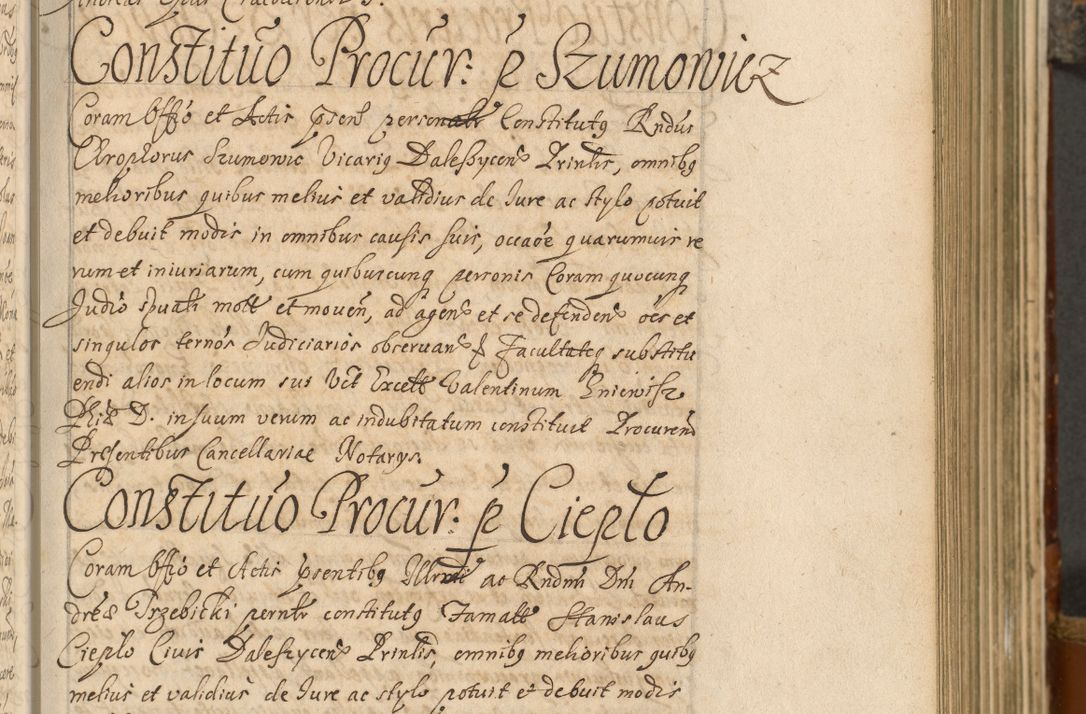 Constituo Procur: p̄ Szumowicz
Coram Offō et Actis p̄sent̄ personalr̄ Constitutq Rndus
Christophorus Szumowic Vicariq Daleszycens Princlis, omnibq
melioribus quibus melius et validius de Jure ac stylo potuit
et debuit modis in omnibus causis suis, occaōe quarumvis re
rum et iniuriarum, cum quibuscunq personis Coram quocunq
Judīo spuali mott et movēn, ad agend et se defendend ōes et
singulos termōs Judiciarios observand Facultateq substitu
endi alios in locum sui Vct Excett Valentinum Zniewisz
Phiæ D. in suum verum ac indubitatum constituit Procurem
Presentibus Cancellariae Notarys.
Constituo Procur: p̄ Ciepło
Coram Offō et Actis p̄sentibq Illmi ac Rndmi Dni An-
dreæ Trzebicki pernlr constitutq Famatt Stanislaus
Ciepło Civis Daleszycens Princlis, omnibq melioribus quibq
melius et validius de Jure ac stylo potuit et debuit modis